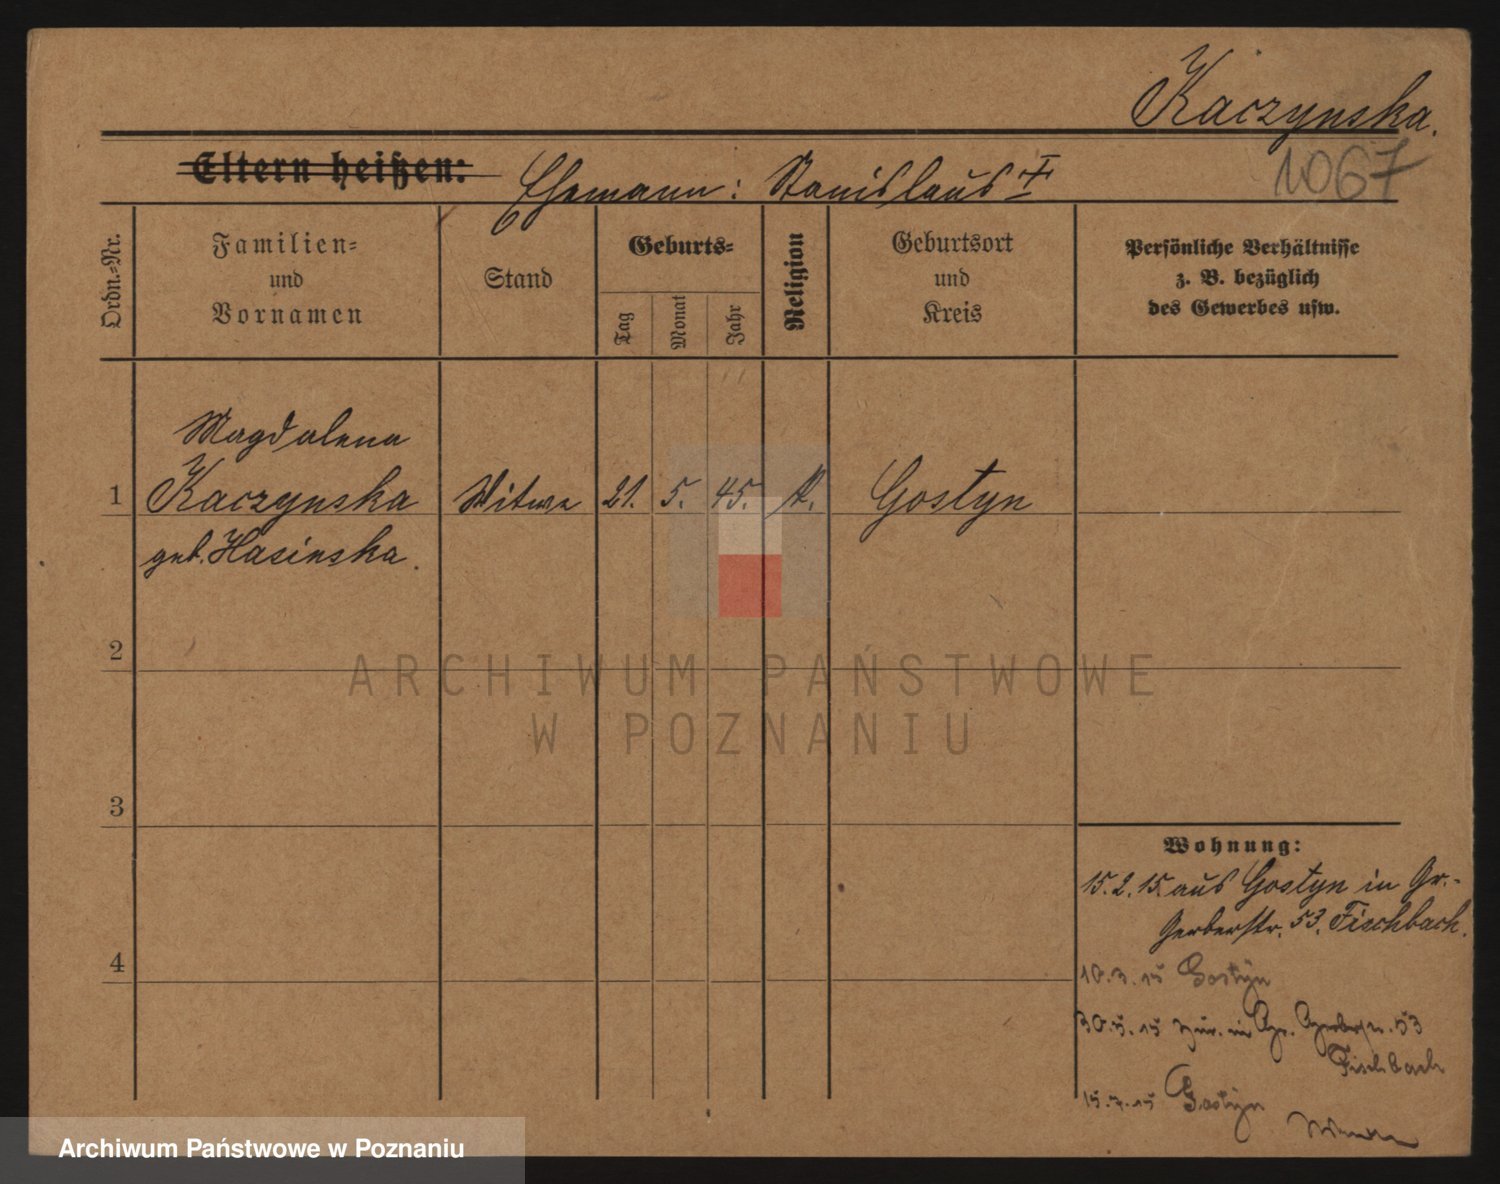 Kaczynska.
1067
Eltern heißen: Ehemann: Stanislaus †
Ordn.=Nr.
Familien=
und
Vornamen
Stand
Geburts=
Tag
Monat
Jahr
Religion
Geburtsort
und
Kreis
Persönliche Verhältnisse
z. B. bezüglich
des Gewerbes usw.
Magdalena
1 Kaczynska Witwe 21. 5. 45. k. Gostyn
geb. Hasinska.
2
ARCHIWUM PAŃSTWOWE
W POZNANIU
3
Wohnung:
15.2.15. aus Gostyn in Gr.-
Gerberstr. 53. Fischbach.
4
10.3.15 Gostyn
30.5.15 zur. in Gr. Gerberstr. 53
Fischbach
15.7.15 Gostyn
Archiwum Państwowe w Poznaniu